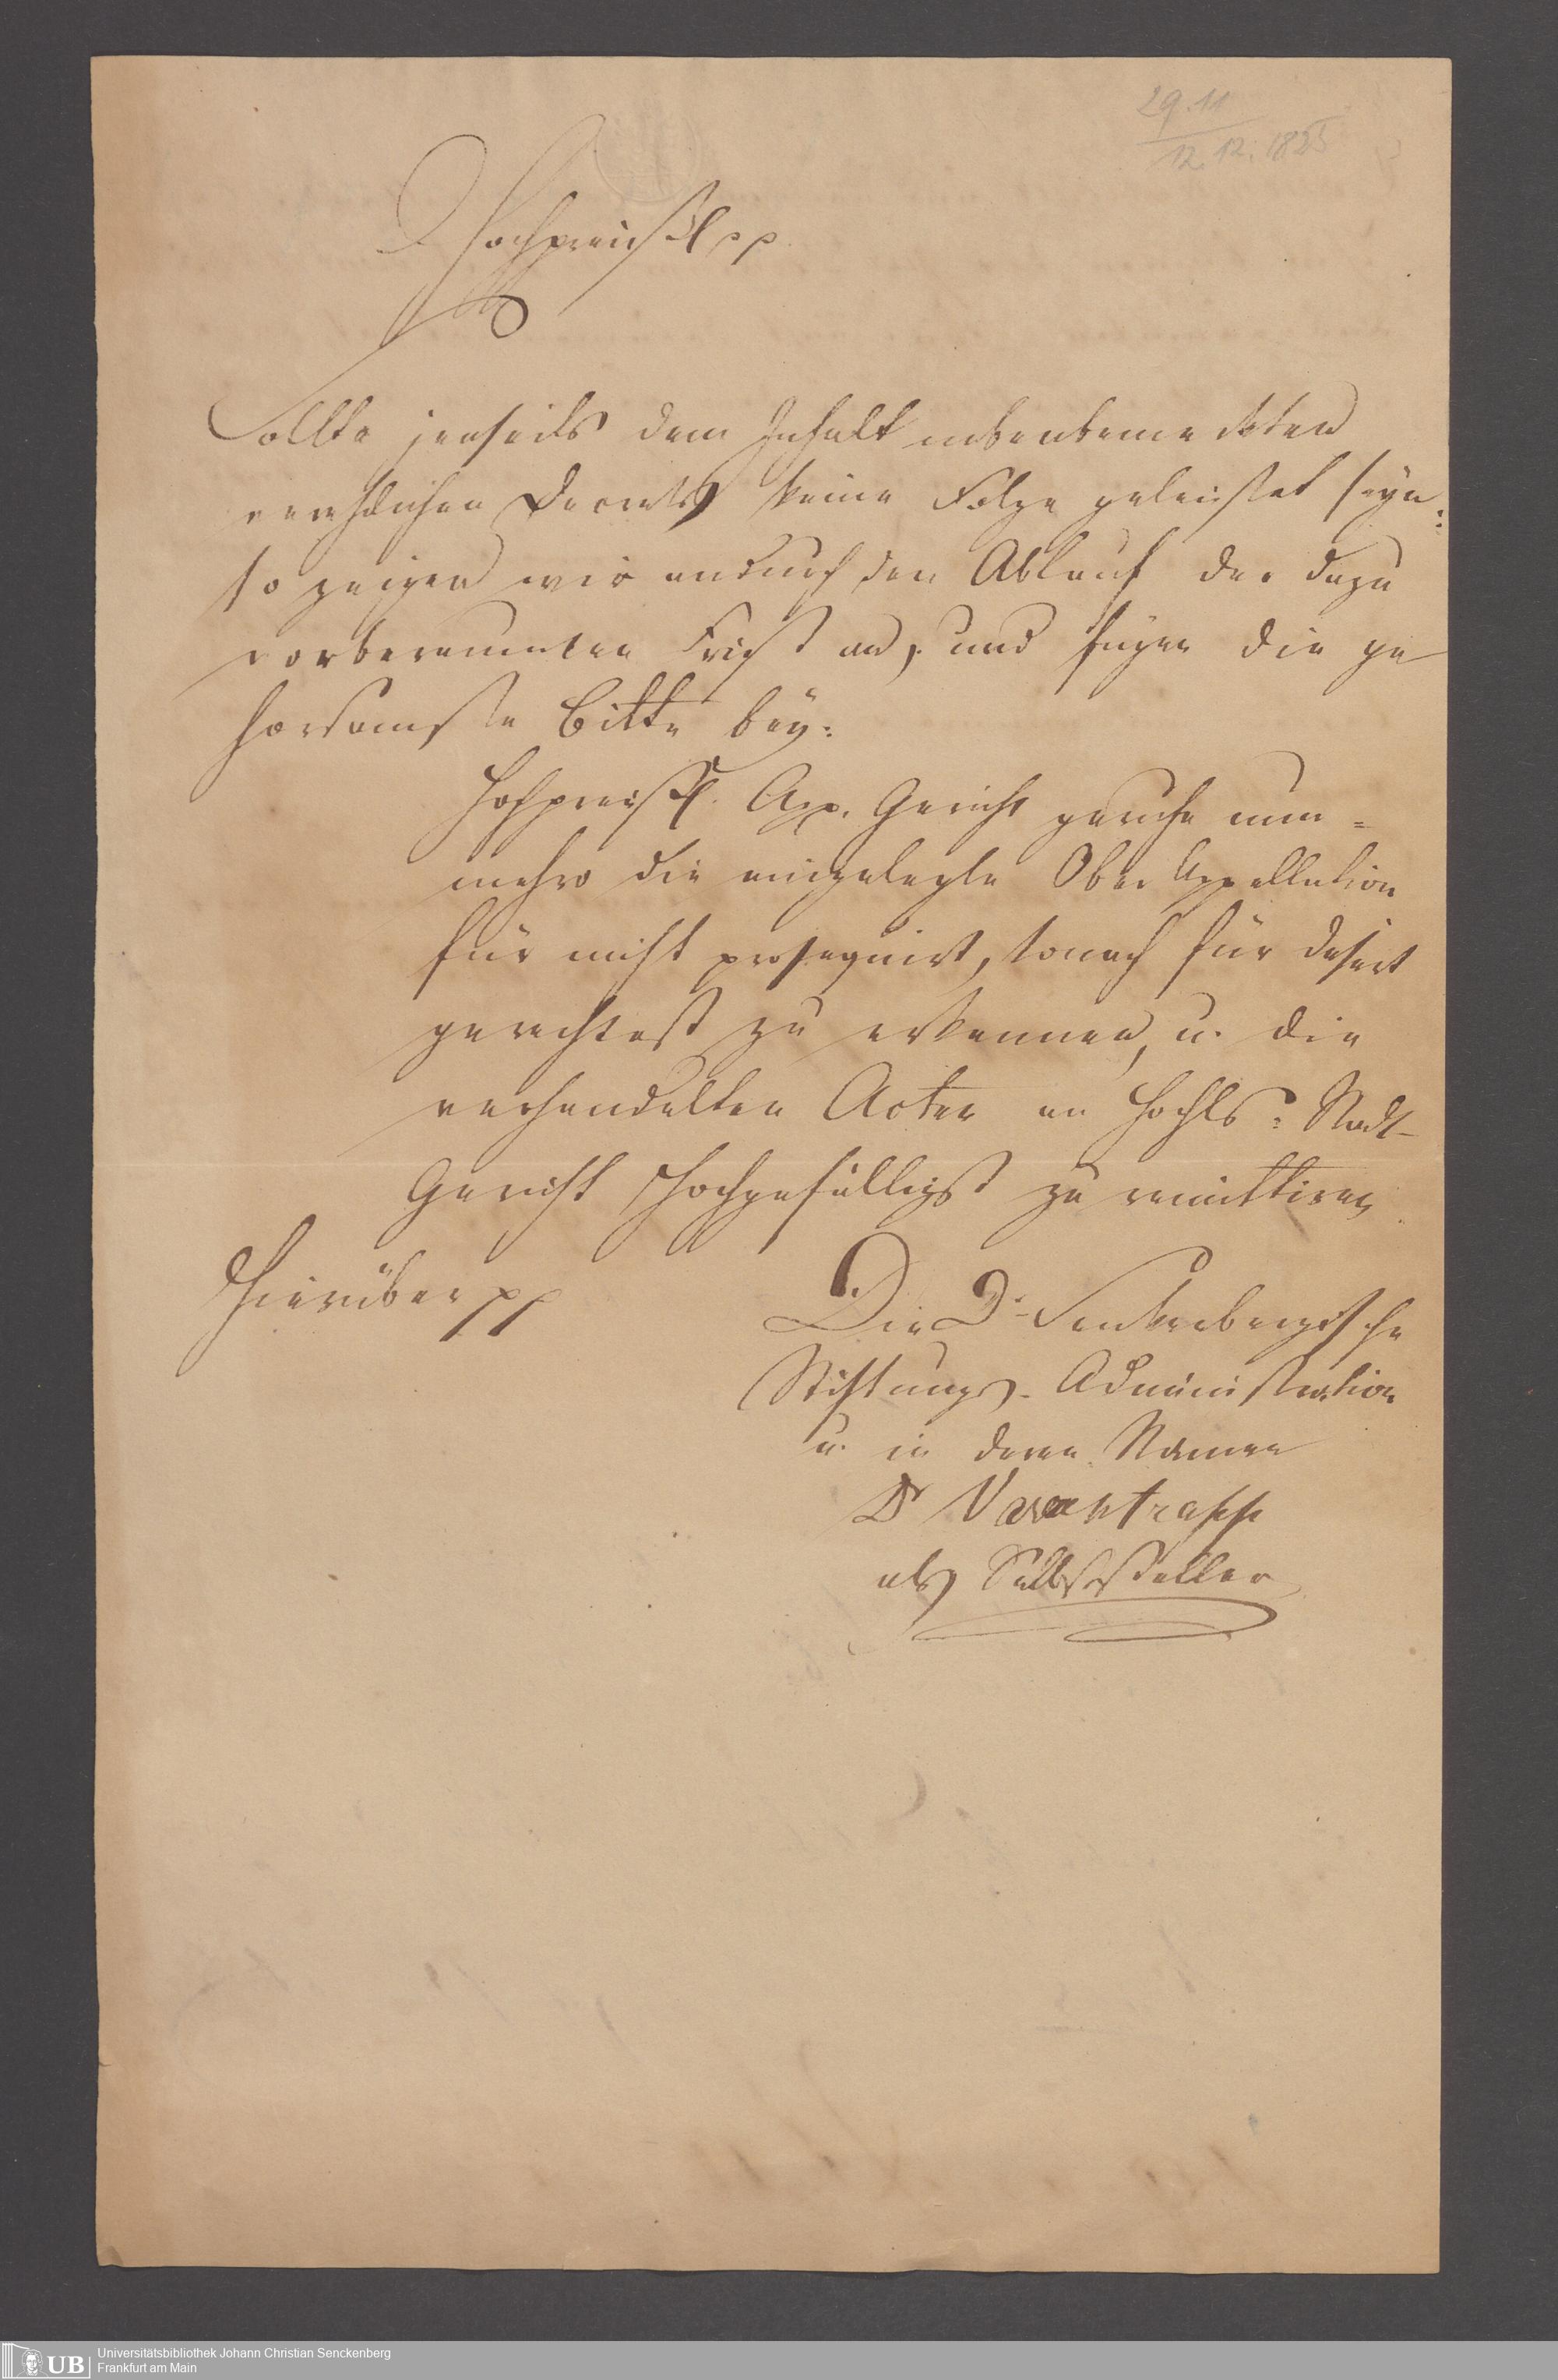 29.11
12.12.1825
Hochpreißl pp.
Sollte jenseits dem Inhalt nebenbemerkten
verehrlichen Decrets keine Folge geleistet seyn:
so zeigen wir andurch den Ablauf der dazu
vorberaumten Frist an, und fügen die ge
horsamste Bitte bey:
Hochpreißl. App. Gericht geruhe nun=
mehro die eingelegte Ober Appellation
für nicht prosequirt, sonach für desert
gerechtest zu erkennen, u. die
verhandelten Acten an Hochlö: Stadt-
Gericht hochgefälligst zu remittiren
Hierüber pp
Die Dr Senkenbergische
Stiftungs-Administration
u. in deren Namen
Dr Varrentrapp
als Selbststeller
UB Universitätsbibliothek Johann Christian Senckenberg
Frankfurt am Main